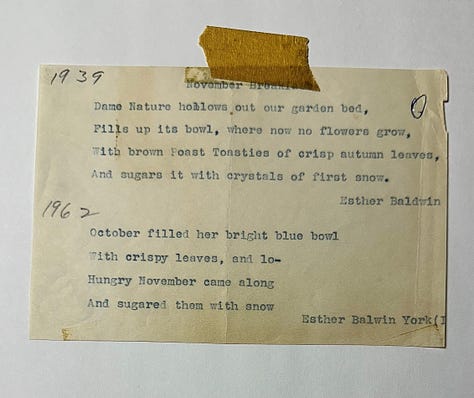 1939
November
Dame Nature hollows out our garden bed,
Fills up its bowl, where now no flowers grow,
With brown Post Toasties of crisp autumn leaves,
And sugars it with crystals of first snow.
Esther Baldwin
1962
October filled her bright blue bowl
With crispy leaves, and lo-
Hungry November came along
And sugared them with snow
Esther Balwin York